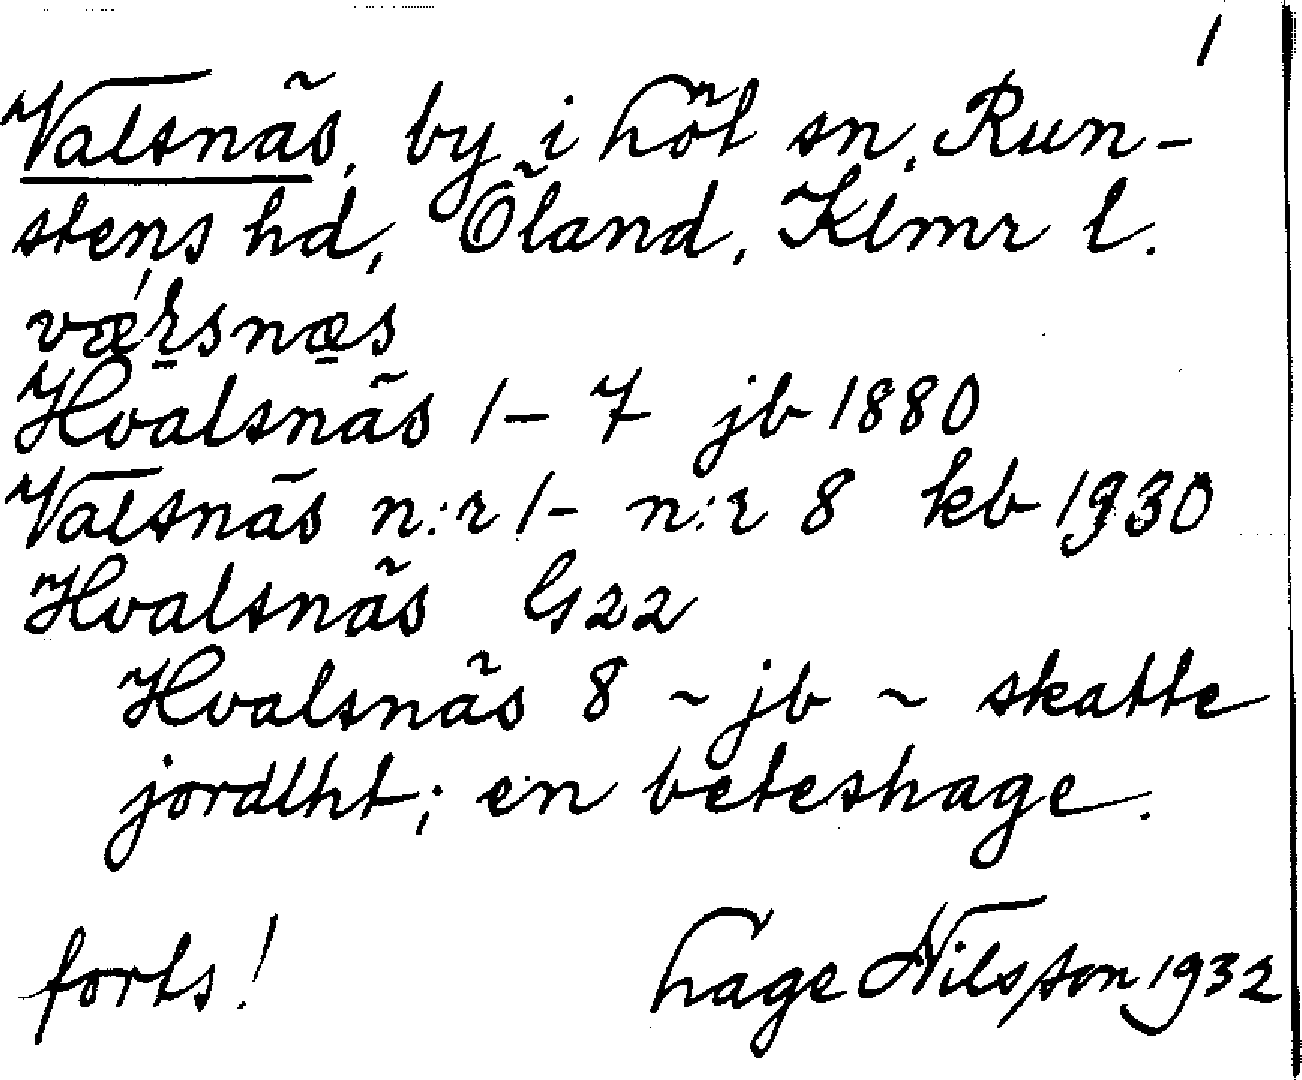 1
Valsnäs, by i Löt sn, Run-
stens hd, Öland, Klmr l.
Hvalsnäs 1 – 7 jb 1880
Valsnäs n:r 1 – n:r 8 kb 1930
Hvalsnäs G22
Hvalsnäs 8 ~ jb ~ skatte
jordlht; en beteshage.
forts! Lage Nilsson 1932